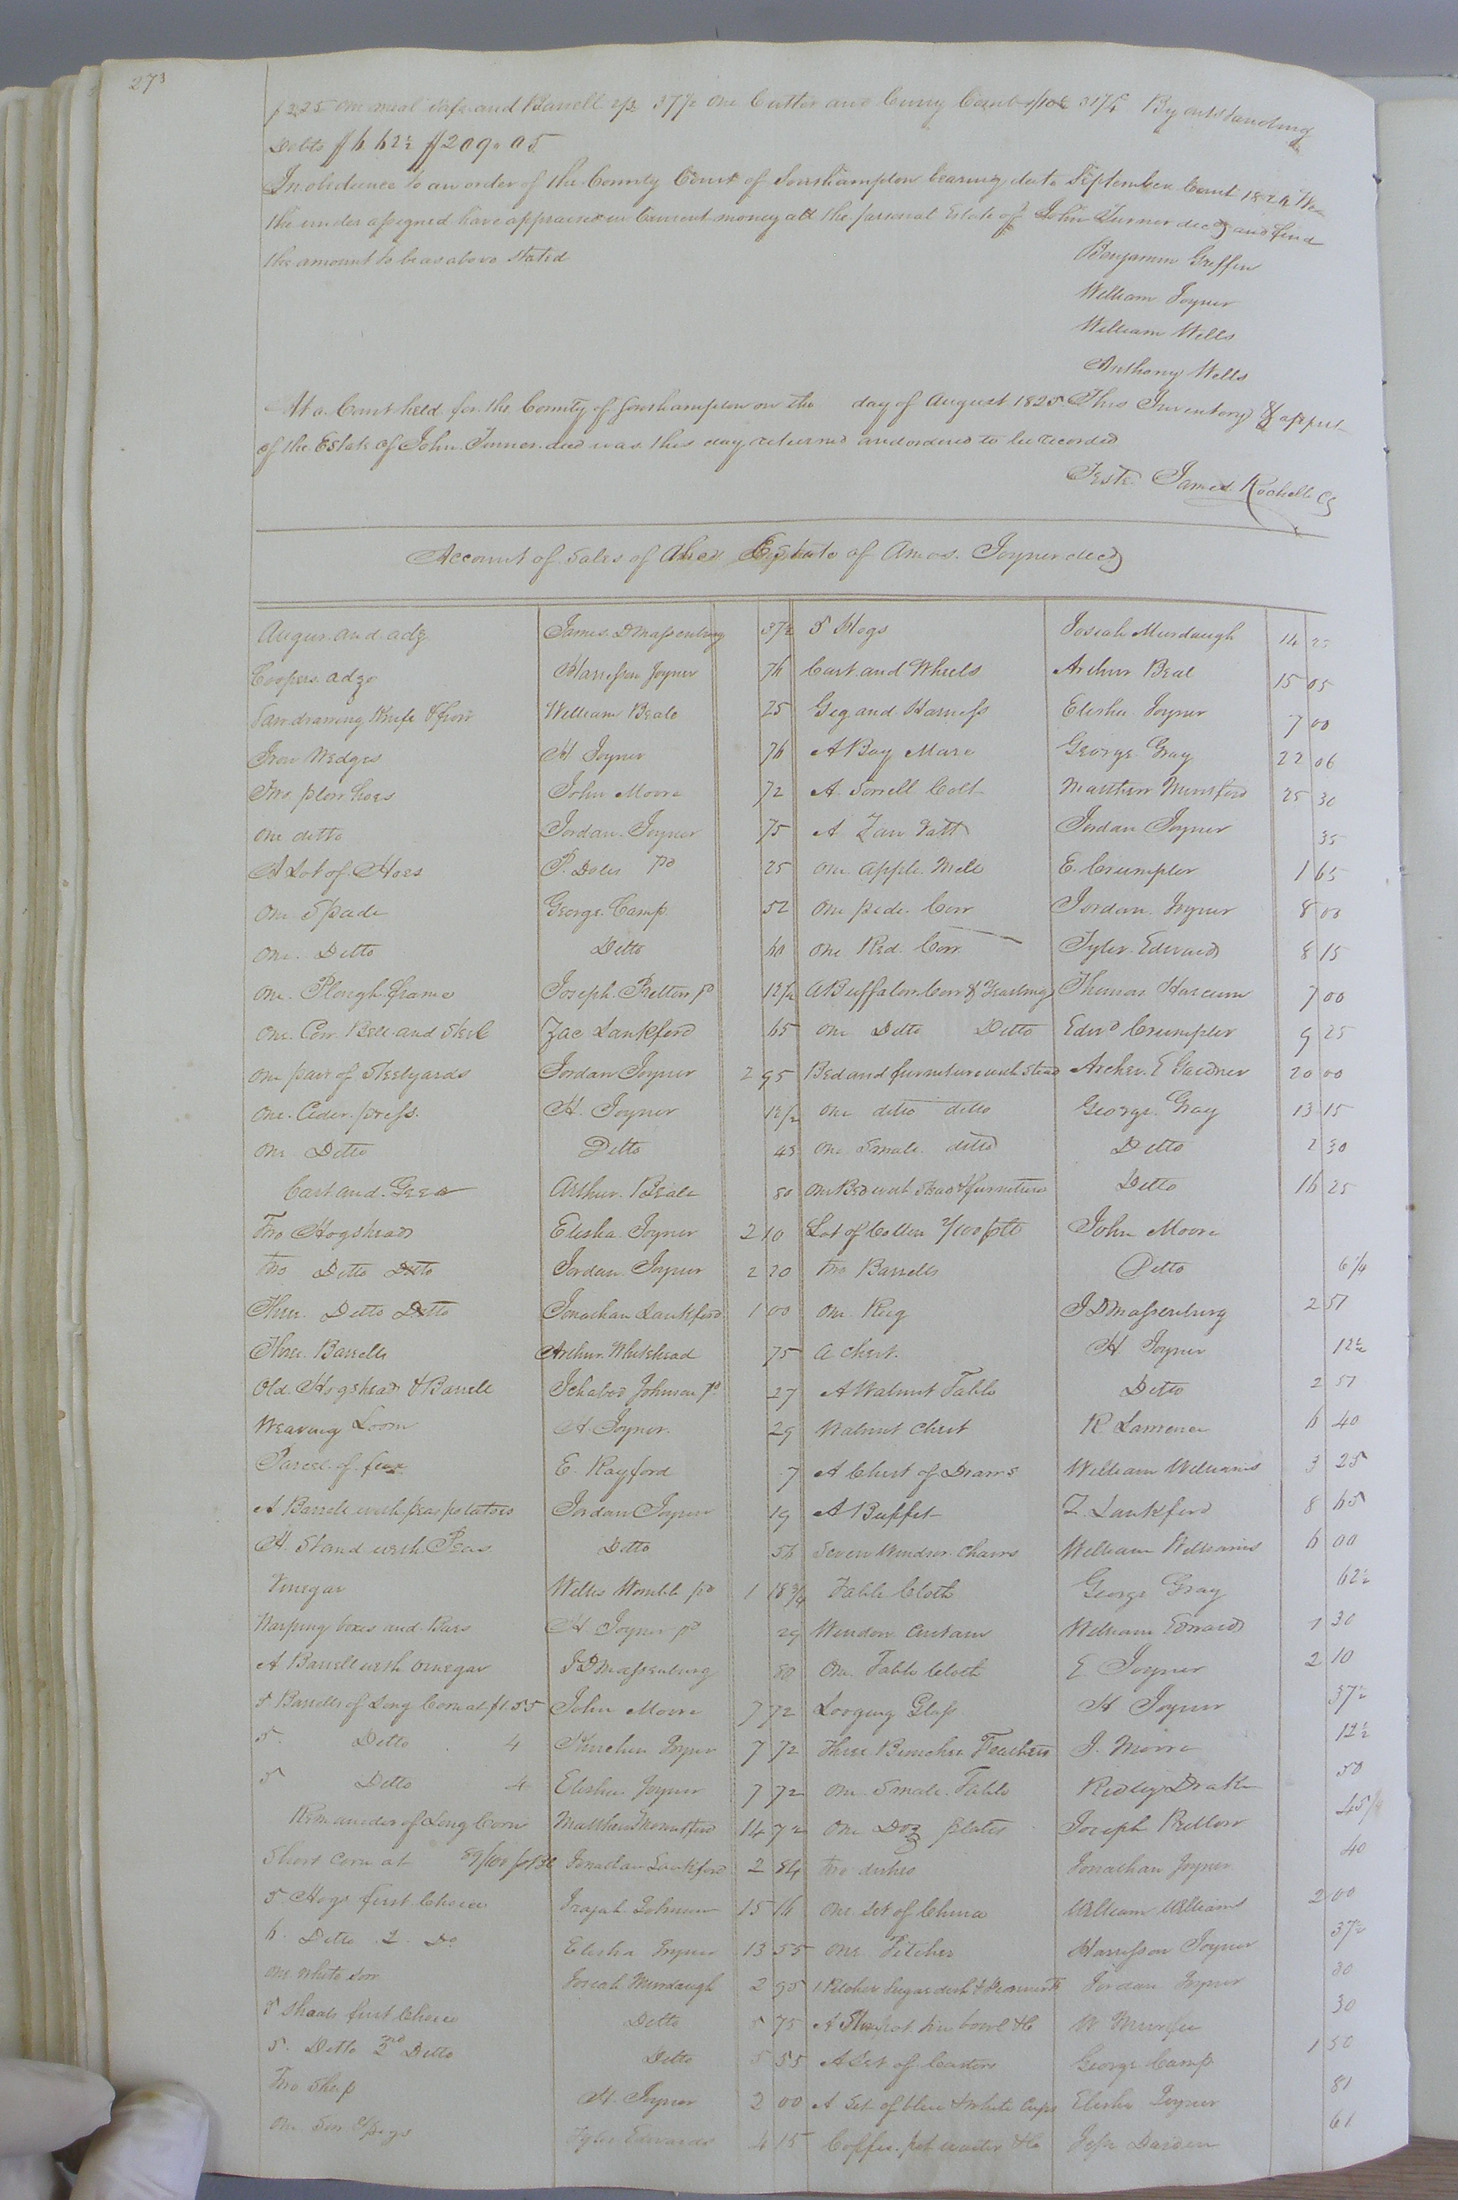 273
$2.25 One meal Safe and Barrell 2/3 37½ One Cutter and Curry Comb 1/10½ 31¼ By outstanding
Debts $6.62½ $209.05
In obedience to an order of the County Court of Southampton bearing date September Court 1824 We
the under assigned have appraised in Current money all the personal Estate of John Turner decd and find
the amount to be as above Stated
Benjamin Griffin
William Joyner
William Wells
Anthony Wells
At a Court held for the County of Southampton on the day of August 1825 This Inventory & appmt
of the Estate of John Turner decd was this day returned and ordered to be recorded
Teste James Rochelle CS
Account of Sales of the Estate of Amos Joyner decd
Augur and adz James D Massenburg 37½ 5 Hogs Josiah Murdaugh 14
Coopers adze Harrisson Joyner 76 Cart and Wheels Arthur Beal 15 05
drawing Knife William Beale 25 Gig and Harness Elisha Joyner 7 00
Iron Wedges H Joyner 76 A Bay Mare George Gray 22 06
Two plow hoes John Moore 72 A Sorrell Colt Matthew 25 30
One ditto Jordan Joyner 75 A Tan Vatt Jordan Joyner 35
A Lot of Hoes P. Doles pd 25 One Apple Mill E. Crumpler 1 65
One Spade George Camp 52 One pide Cow Jordan Joyner 8 00
One Ditto Ditto 60 One Red Cow Tyler Edwards 8 15
One Plough frame Joseph Pretlow pd 12½ A Buffalow Cow & Yearling Thomas Harcum 7 00
One Cow Bell and Zac Lankford 65 One Ditto Ditto Edwd Crumpler 9 25
One pair of Steelyards Jordan Joyner 2 95 Bed and furniture with Stead Archer E Gardner 20 00
One Cider press H. Joyner 12½ One ditto ditto George Gray 13 15
One Ditto Ditto 43 One Small ditto Ditto 2 30
Cart and Gear Arthur Beale 80 One Bed with Stead & furniture Ditto 16 25
Two Hogsheads Elisha Joyner 2 10 Lot of Cotton John Moore
Two Ditto Ditto Jordan Joyner 2 20 Two Barrells Ditto 6¼
Three Ditto Ditto Jonathan Lankford 1 00 One Rug J D Massenburg 2 51
Three Barrells Arthur Whitehead 75 A Chest H Joyner 12½
Old Hogshead & Barrell Ichabod Johnson pd 27 A Walnut Table Ditto 2 51
Weaving Loom H. Joyner 29 Walnut Chest R Lawrence 6 40
Parcel of flax E. Rayford 7 A Chest of Draws William Williams 3 25
A Barrell with peas potatoes Jordan Joyner 19 A Buffet Z. Lankford 8 65
A Stand with Peas Ditto 56 Seven Windsor Chairs William Williams 6 00
Vinegar Willis Womble pd 1 18¾ Table Cloth George Gray 62½
Warping boxes and Bars H Joyner pd 29 Window Curtain William Edwards 1 30
A Barrell with vinegar J D Massenburg 80 One Table Cloth E Joyner 2 10
5 Barrells of Long Corn at John Moore 7 72 Looging Glass H Joyner 37½
5 Ditto 4 Joyner 7 72 Three Bunches Feathers J. Moore 12½
5 Ditto 4 Elisha Joyner 7 72 One Small Table Ridley Drake 50
Remainder of Long Corn Matthew 14 72 One Doz plates Joseph Pretlow
Short Corn at Jonathan Lankford 2 84 Two dishes Jonathan Joyner 40
5 Hogs first Choice Johnson 15 16 One Set of China William Williams 2 00
6 Ditto 2 Do Elisha Joyner 13 55 One Pitcher Harrisson Joyner 37½
One white Sow Josiah Murdaugh 2 95 1 Pitcher Sugar dish Jordan Joyner 30
5 Shoats first Choice Ditto 5 75 A pot tin bowl &c W 30
5 Ditto 2nd Ditto Ditto 5 55 A Set of Castors George Camp 1 50
Two Sheep H. Joyner 2 00 A Set of blue & white Cups Elisha Joyner 81
One Sow & Pigs Tyler Edwards 4 15 Coffee pot waiter &c Jesse Darden 61